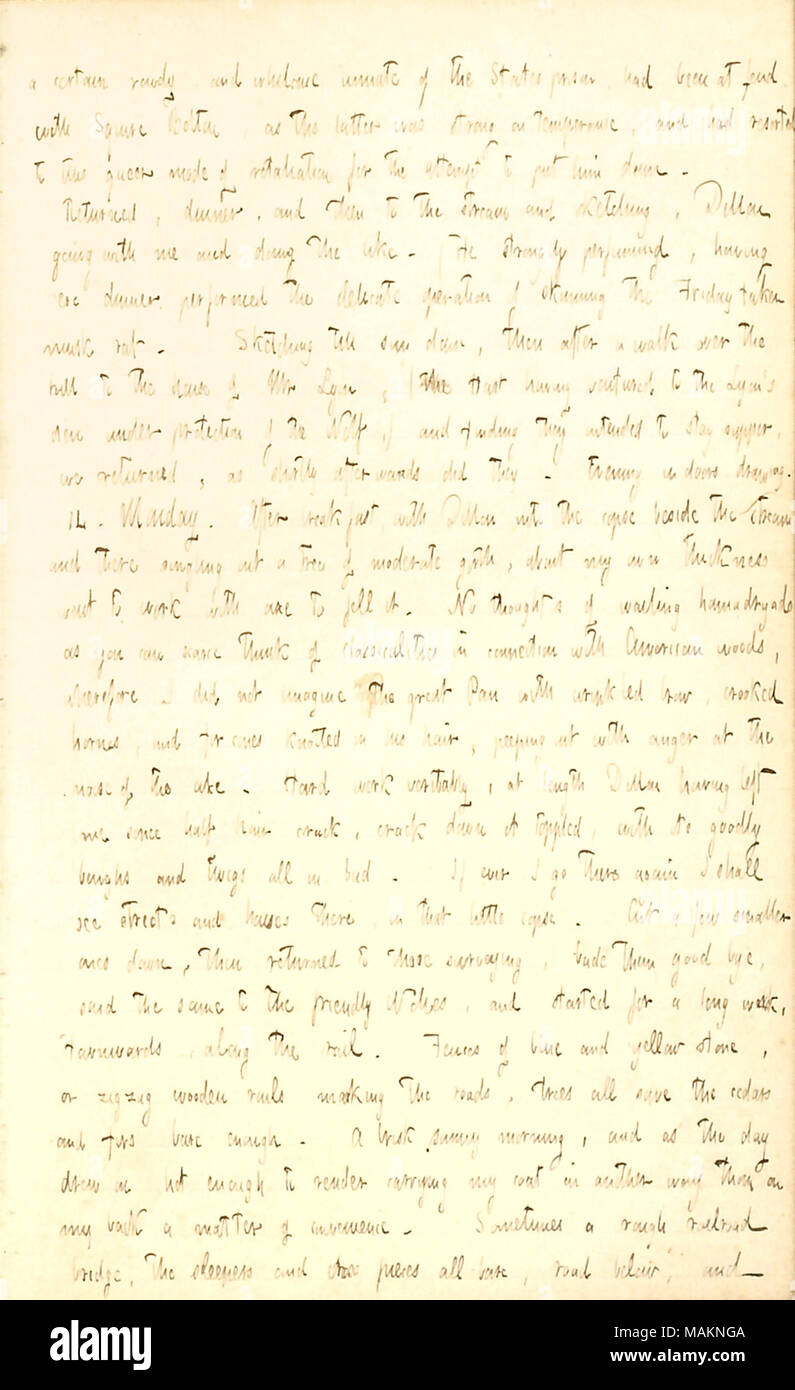 a certain rowdy and whilome inmate of the States prison had been at feud
with Squire Bolton, as the latter was strong on temperance, and had resorted
to this queer mode of retaliation for the attempt to put him down.
Returned, dinner, and then to the stream and sketching, Dillon
going with me and doing the like. (He strongly perfumed, having
ere dinner performed the delicate operation of skinning the Friday taken
musk rat. Sketching till sun down, then after a walk over the
hill to the house of Mr Lyon, (the Hart having ventured to the Lyon's
den under protection of the Wolf,) and finding they intended to stay supper,
we returned, as shortly afterwards did they. Evening in doors drawing.
14. Monday. After breakfast with Dillon into the copse beside the stream
and there singling out a tree of moderate girth, about my own thickness
went to work with axe to fell it. No thoughts of wailing hamadryads
as you can scarce think of classicalities in connection with American woods,
therefore I did not imagine the great Pan with wrinkled brow, crooked
horns, and fir cones knotted in his hair, peeping out with anger at the
noise of the axe. Hard work veritably, at length Dillon having left
me since half hour crack, crack down it toppled, with its goodly
boughs and twigs all in bud. If ever I go there again I shall
see streets and houses there, in that little copse. Cut a few smaller
ones down, then returned to those surveying, bade them good bye,
said the same to the friendly Wolfes, and started for a long walk,
Townwards, along the rail. Fences of blue and yellow stone,
or zigzig wooden rails marking the roads, trees all save the cedars
and firs bare enough. A brisk sunny morning, and as the day
drew on hot enough to render carrying my coat in another way than on
my back a matter of convenience. Sometimes a rough railroad
bridge, the sleepers and cross pieces all bare, road below, and
alamy
Image ID: MAKNGA
www.alamy.com